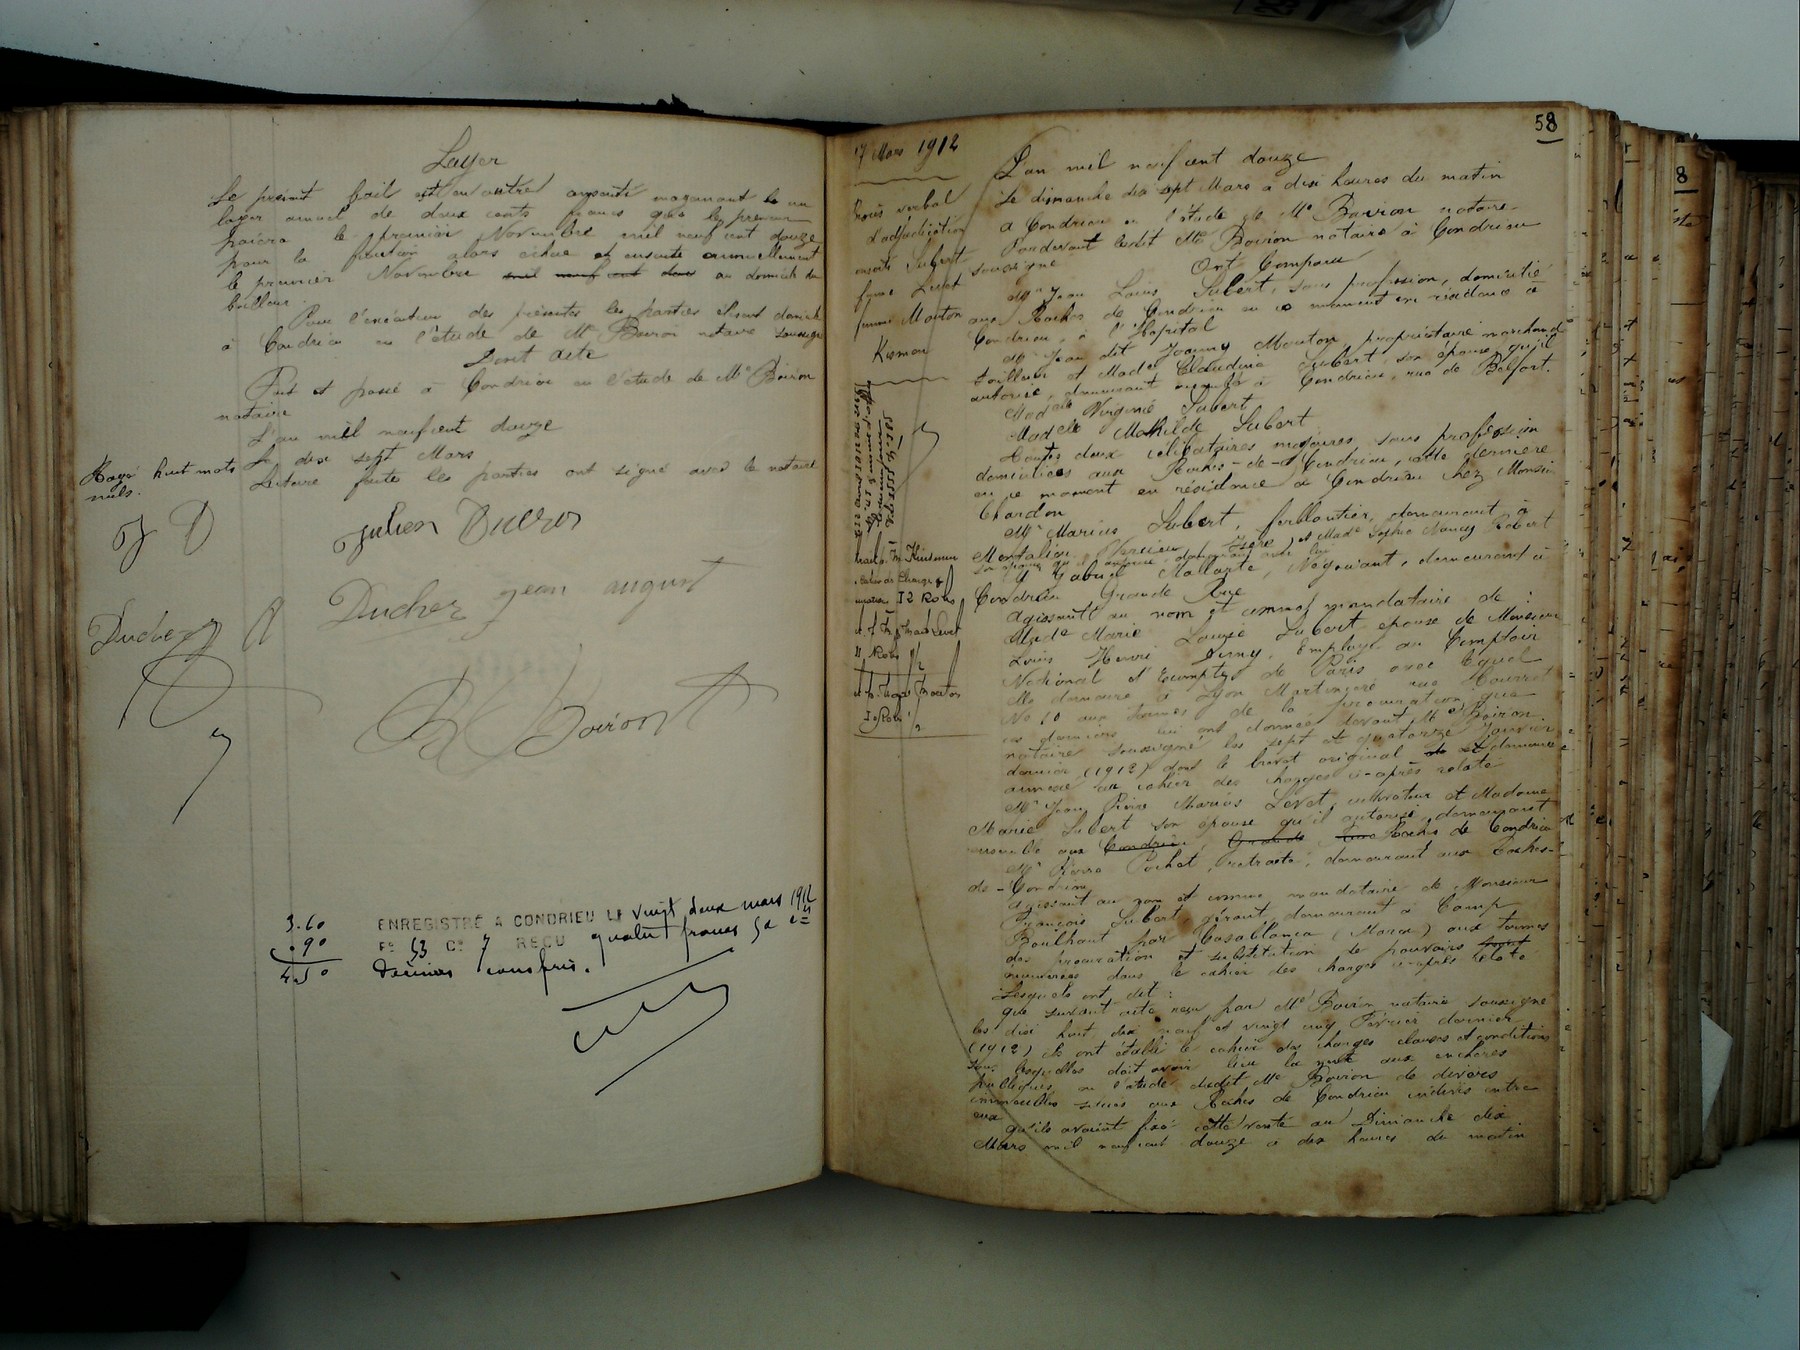 Loyer
Le présent bail est en outre consenti moyennant un
loyer annuel de deux cents francs que le preneur
paiera le premier Novembre mil neuf cent douze
pour la fraction alors échue et ensuite annuellement
le premier Novembre mil neuf cent au domicile du
bailleur.
Pour l'exécution des présentes les parties élisent domicile
à Condrieu en l'étude de Me Boiron notaire soussigné
Dont acte
Fait et passé à Condrieu en l'étude de Me Boiron
notaire
L'an mil neuf cent douze
Le dix sept Mars
Lecture faite les parties ont signé avec le notaire
Rayé huit mots
nuls.
J D
Julien
jean august
Boiron
3.60
.90
4.50
ENREGISTRÉ A CONDRIEU LE vingt deux mars 1912
Fo 53 Ce 7 REÇU quatre francs 50 c
Décimes compris.
58
17 Mars 1912
Procès verbal
d'adjudication
consorts Jubert
femme Levet
femme Mouton
L'an mil neuf cent douze
Le dimanche dix sept Mars à dix heures du matin
à Condrieu en l'étude de Me Boiron notaire
Pardevant ledit Me Boiron notaire à Condrieu
soussigné
Ont Comparu
Mr Jean Louis Jubert, sans profession, domicilié
aux Roches de Condrieu en ce moment en résidence à
Condrieu, à l'Hopital
Mr Jean dit Joanny Mouton, propriétaire marchand
tailleur et Made Claudine Jubert son épouse qu'il
autorise, demeurant ensemble à Condrieu, rue de Belfort.
Madelle Virginie Jubert
Madelle Mathilde Jubert
Toutes deux célibataires majeures, sans profession
domiciliées aux Roches-de-Condrieu, cette dernière
en ce moment en résidence à Condrieu chez Monsieur
Chardon
Mr Marius Jubert, ferblantier, demeurant à
Montalieu Vercieu (Isère) et Made Sophie Nancy Robert
son épouse qu'il autorise demeurant avec lui
Mr Gabriel Mallarte, Négociant, demeurant à
Condrieu Grande Rue
Agissant au nom et comme mandataire de :
Made Marie Louise Jubert épouse de Monsieur
Louis Henri, Employé au Comptoir
National d'Escompte de Paris avec lequel
elle demeure à Lyon
No 10 aux termes de la procuration que
ces derniers lui ont donnée devant Me Boiron
notaire soussigné les sept et quatorze Janvier
dernier (1912) dont le brevet original est demeuré
annexé au cahier des charges ci-après relaté
Mr Jean Pierre Marius Levet cultivateur et Madame
Marie Jubert son épouse qu'il autorise, demeurant
ensemble aux Condrieu, Grande Rue Roches de Condrieu
Mr Pierre Pochet, retraité, demeurant aux Roches-
de-Condrieu
Agissant au nom et comme mandataire de Monsieur
François Jubert gérant, demeurant à Camp
Boulhaut par Casablanca (Maroc) aux termes
des procuration et substitution de pouvoirs
énumérées dans le cahier des charges ci-après relaté
Lesquels ont dit :
que suivant acte reçu par Me Boiron notaire soussigné
les dix huit, dix neuf et vingt cinq Février dernier
(1912) ils ont établi le cahier des charges clauses et conditions
sous lesquelles doit avoir lieu la vente aux enchères
publiques en l'étude dudit Me Boiron de divers
immeubles situés aux Roches de Condrieu indivis entre
eux
qu'ils avaient fixé cette vente au Dimanche dix
Mars mil neuf cent douze à dix heures du matin